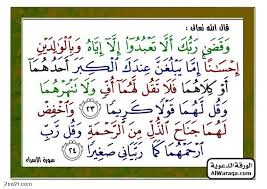 قال الله تعالى :
وَقَضَىٰ رَبُّكَ أَلَّا تَعْبُدُوٓا۟ إِلَّآ إِيَّاهُ وَبِٱلْوَٰلِدَيْنِ
إِحْسَٰنًا إِمَّا يَبْلُغَنَّ عِندَكَ ٱلْكِبَرَ أَحَدُهُمَآ
أَوْ كِلَاهُمَا فَلَا تَقُل لَّهُمَآ أُفٍّ وَلَا تَنْهَرْهُمَا
وَقُل لَّهُمَا قَوْلًا كَرِيمًا ٢٣ وَٱخْفِضْ
لَهُمَا جَنَاحَ ٱلذُّلِّ مِنَ ٱلرَّحْمَةِ وَقُل رَّبِّ
ٱرْحَمْهُمَا كَمَا رَبَّيَانِى صَغِيرًا ٢٤
سورة الإسراء
الورقة الدعوية
AlWaraqa.com